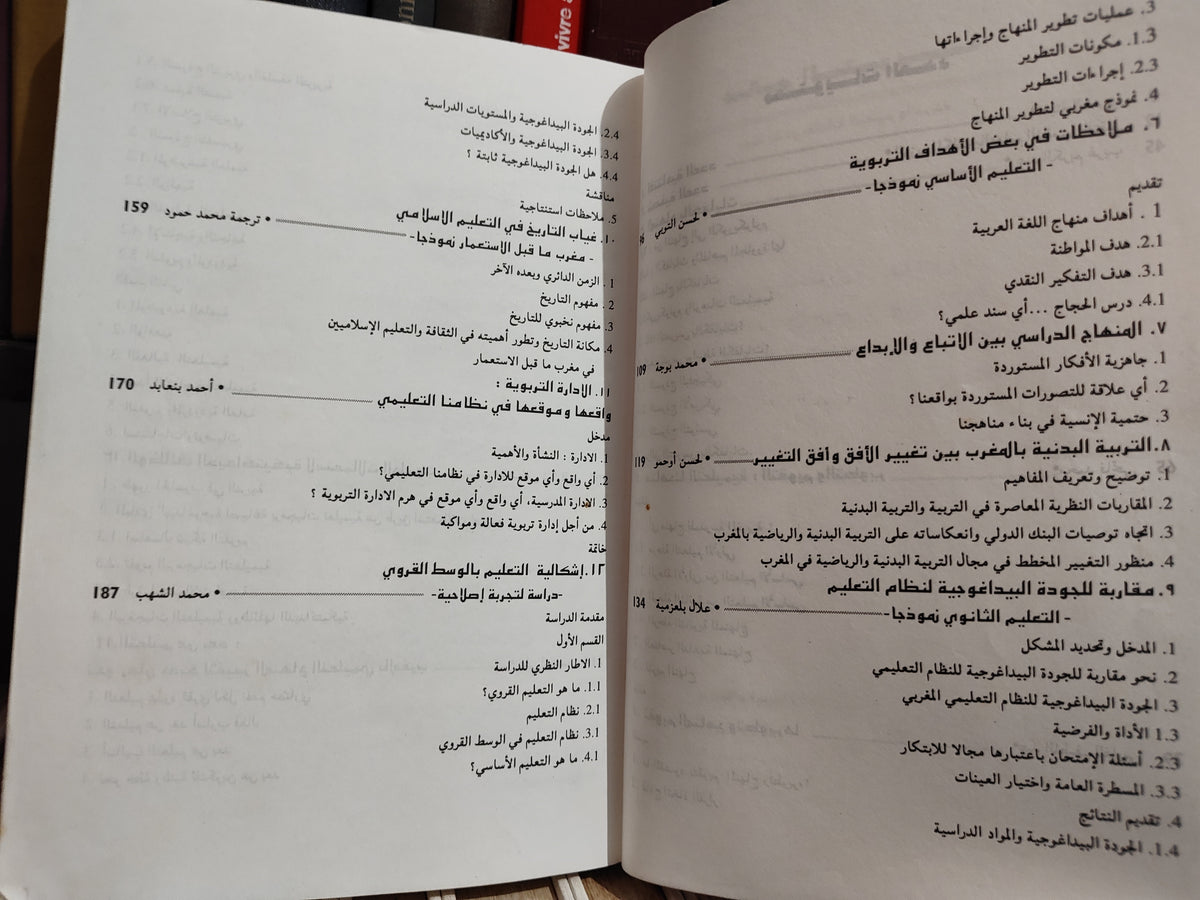 3. عمليات تطوير المنهاج وإجراءاتها
1.3. مكونات التطوير
2.3. إجراءات التطوير
4. نموذج مغربي لتطوير المنهاج
٦. ملاحظات في بعض الأهداف التربوية
- التعليم الأساسي نموذجا- • لحسن التوبي 96
تقديم
1 . أهداف منهاج اللغة العربية
2.1. هدف المواطنة
3.1. هدف التفكير النقدي
4.1. درس الحجاج ...أي سند علمي؟
٧. المنهاج الدراسي بين الاتباع والإبداع • محمد بوجة 109
1. جاهزية الأفكار المستوردة
2. أي علاقة للتصورات المستوردة بواقعنا؟
3. حتمية الإنسية في بناء مناهجنا
٨. التربية البدنية بالمغرب بين تغيير الأفق وأفق التغيير • لحسن أوحمو 119
1. توضيح وتعريف المفاهيم
2. المقاربات النظرية المعاصرة في التربية والتربية البدنية
3. اتجاه توصيات البنك الدولي وانعكاساته على التربية البدنية والرياضية بالمغرب
4. منظور التغيير المخطط في مجال التربية البدنية والرياضية في المغرب
٩. مقاربة للجودة البيداغوجية لنظام التعليم
- التعليم الثانوي نموذجا- • علال بلعزمية 134
1. المدخل وتحديد المشكل
2. نحو مقاربة للجودة البيداغوجية للنظام التعليمي
3. الجودة البيداغوجية للنظام التعليمي المغربي
1.3 الأداة والفرضية
2.3. أسئلة الإمتحان باعتبارها مجالا للابتكار
3.3. المسطرة العامة واختيار العينات
4. تقديم النتائج
1.4. الجودة البيداغوجية والمواد الدراسية
2.4. الجودة البيداغوجية والمستويات الدراسية
3.4. الجودة البيداغوجية والأكاديميات
4.4. هل الجودة البيداغوجية ثابتة ؟
مناقشة
5. ملاحظات استنتاجية
١٠. غياب التاريخ في التعليم الاسلامي
- مغرب ما قبل الاستعمار نموذجا- • ترجمة محمد حمود 159
1 . الزمن الدائري وبعده الآخر
2 . مفهوم التاريخ
3. مفهوم نخبوي للتاريخ
4. مكانة التاريخ وتطور أهميته في الثقافة والتعليم الإسلاميين
في مغرب ما قبل الاستعمار
١١. الادارة التربوية :
واقعها وموقعها في نظامنا التعليمي • أحمد بنعابد 170
مدخل
1. الادارة : النشأة والأهمية
2. أي واقع وأي موقع للادارة في نظامنا التعليمي؟
3. الادارة المدرسية، أي واقع وأي موقع في هرم الادارة التربوية ؟
4. من أجل إدارة تربوية فعالة ومواكبة
خاتمة
١٢. إشكالية التعليم بالوسط القروي
-دراسة لتجربة إصلاحية- • محمد الشهب 187
مقدمة الدراسة
القسم الأول
1. الاطار النظري للدراسة
1.1. ما هو التعليم القروي؟
2.1. نظام التعليم
3.1. نظام التعليم في الوسط القروي
4.1. ما هو التعليم الأساسي؟
vivre